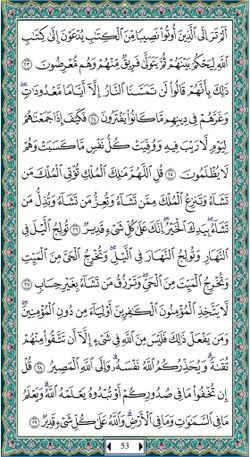 أَلَمْ تَرَ إِلَى الَّذِينَ أُوتُوا نَصِيبًا مِنَ الْكِتَابِ يُدْعَوْنَ إِلَى كِتَابِ
اللَّهِ لِيَحْكُمَ بَيْنَهُمْ ثُمَّ يَتَوَلَّى فَرِيقٌ مِنْهُمْ وَهُمْ مُعْرِضُونَ ﴿٢٣﴾
ذَلِكَ بِأَنَّهُمْ قَالُوا لَنْ تَمَسَّنَا النَّارُ إِلَّا أَيَّامًا مَعْدُودَاتٍ
وَغَرَّهُمْ فِي دِينِهِمْ مَا كَانُوا يَفْتَرُونَ ﴿٢٤﴾ فَكَيْفَ إِذَا جَمَعْنَاهُمْ
لِيَوْمٍ لَا رَيْبَ فِيهِ وَوُفِّيَتْ كُلُّ نَفْسٍ مَا كَسَبَتْ وَهُمْ
لَا يُظْلَمُونَ ﴿٢٥﴾ قُلِ اللَّهُمَّ مَالِكَ الْمُلْكِ تُؤْتِي الْمُلْكَ مَنْ
تَشَاءُ وَتَنْزِعُ الْمُلْكَ مِمَّنْ تَشَاءُ وَتُعِزُّ مَنْ تَشَاءُ وَتُذِلُّ مَنْ
تَشَاءُ بِيَدِكَ الْخَيْرُ إِنَّكَ عَلَى كُلِّ شَيْءٍ قَدِيرٌ ﴿٢٦﴾ تُولِجُ اللَّيْلَ فِي
النَّهَارِ وَتُولِجُ النَّهَارَ فِي اللَّيْلِ وَتُخْرِجُ الْحَيَّ مِنَ الْمَيِّتِ
وَتُخْرِجُ الْمَيِّتَ مِنَ الْحَيِّ وَتَرْزُقُ مَنْ تَشَاءُ بِغَيْرِ حِسَابٍ ﴿٢٧﴾
لَا يَتَّخِذِ الْمُؤْمِنُونَ الْكَافِرِينَ أَوْلِيَاءَ مِنْ دُونِ الْمُؤْمِنِينَ
وَمَنْ يَفْعَلْ ذَلِكَ فَلَيْسَ مِنَ اللَّهِ فِي شَيْءٍ إِلَّا أَنْ تَتَّقُوا مِنْهُمْ
تُقَاةً وَيُحَذِّرُكُمُ اللَّهُ نَفْسَهُ وَإِلَى اللَّهِ الْمَصِيرُ ﴿٢٨﴾ قُلْ
إِنْ تُخْفُوا مَا فِي صُدُورِكُمْ أَوْ تُبْدُوهُ يَعْلَمْهُ اللَّهُ وَيَعْلَمُ
مَا فِي السَّمَاوَاتِ وَمَا فِي الْأَرْضِ وَاللَّهُ عَلَى كُلِّ شَيْءٍ قَدِيرٌ ﴿٢٩﴾
53